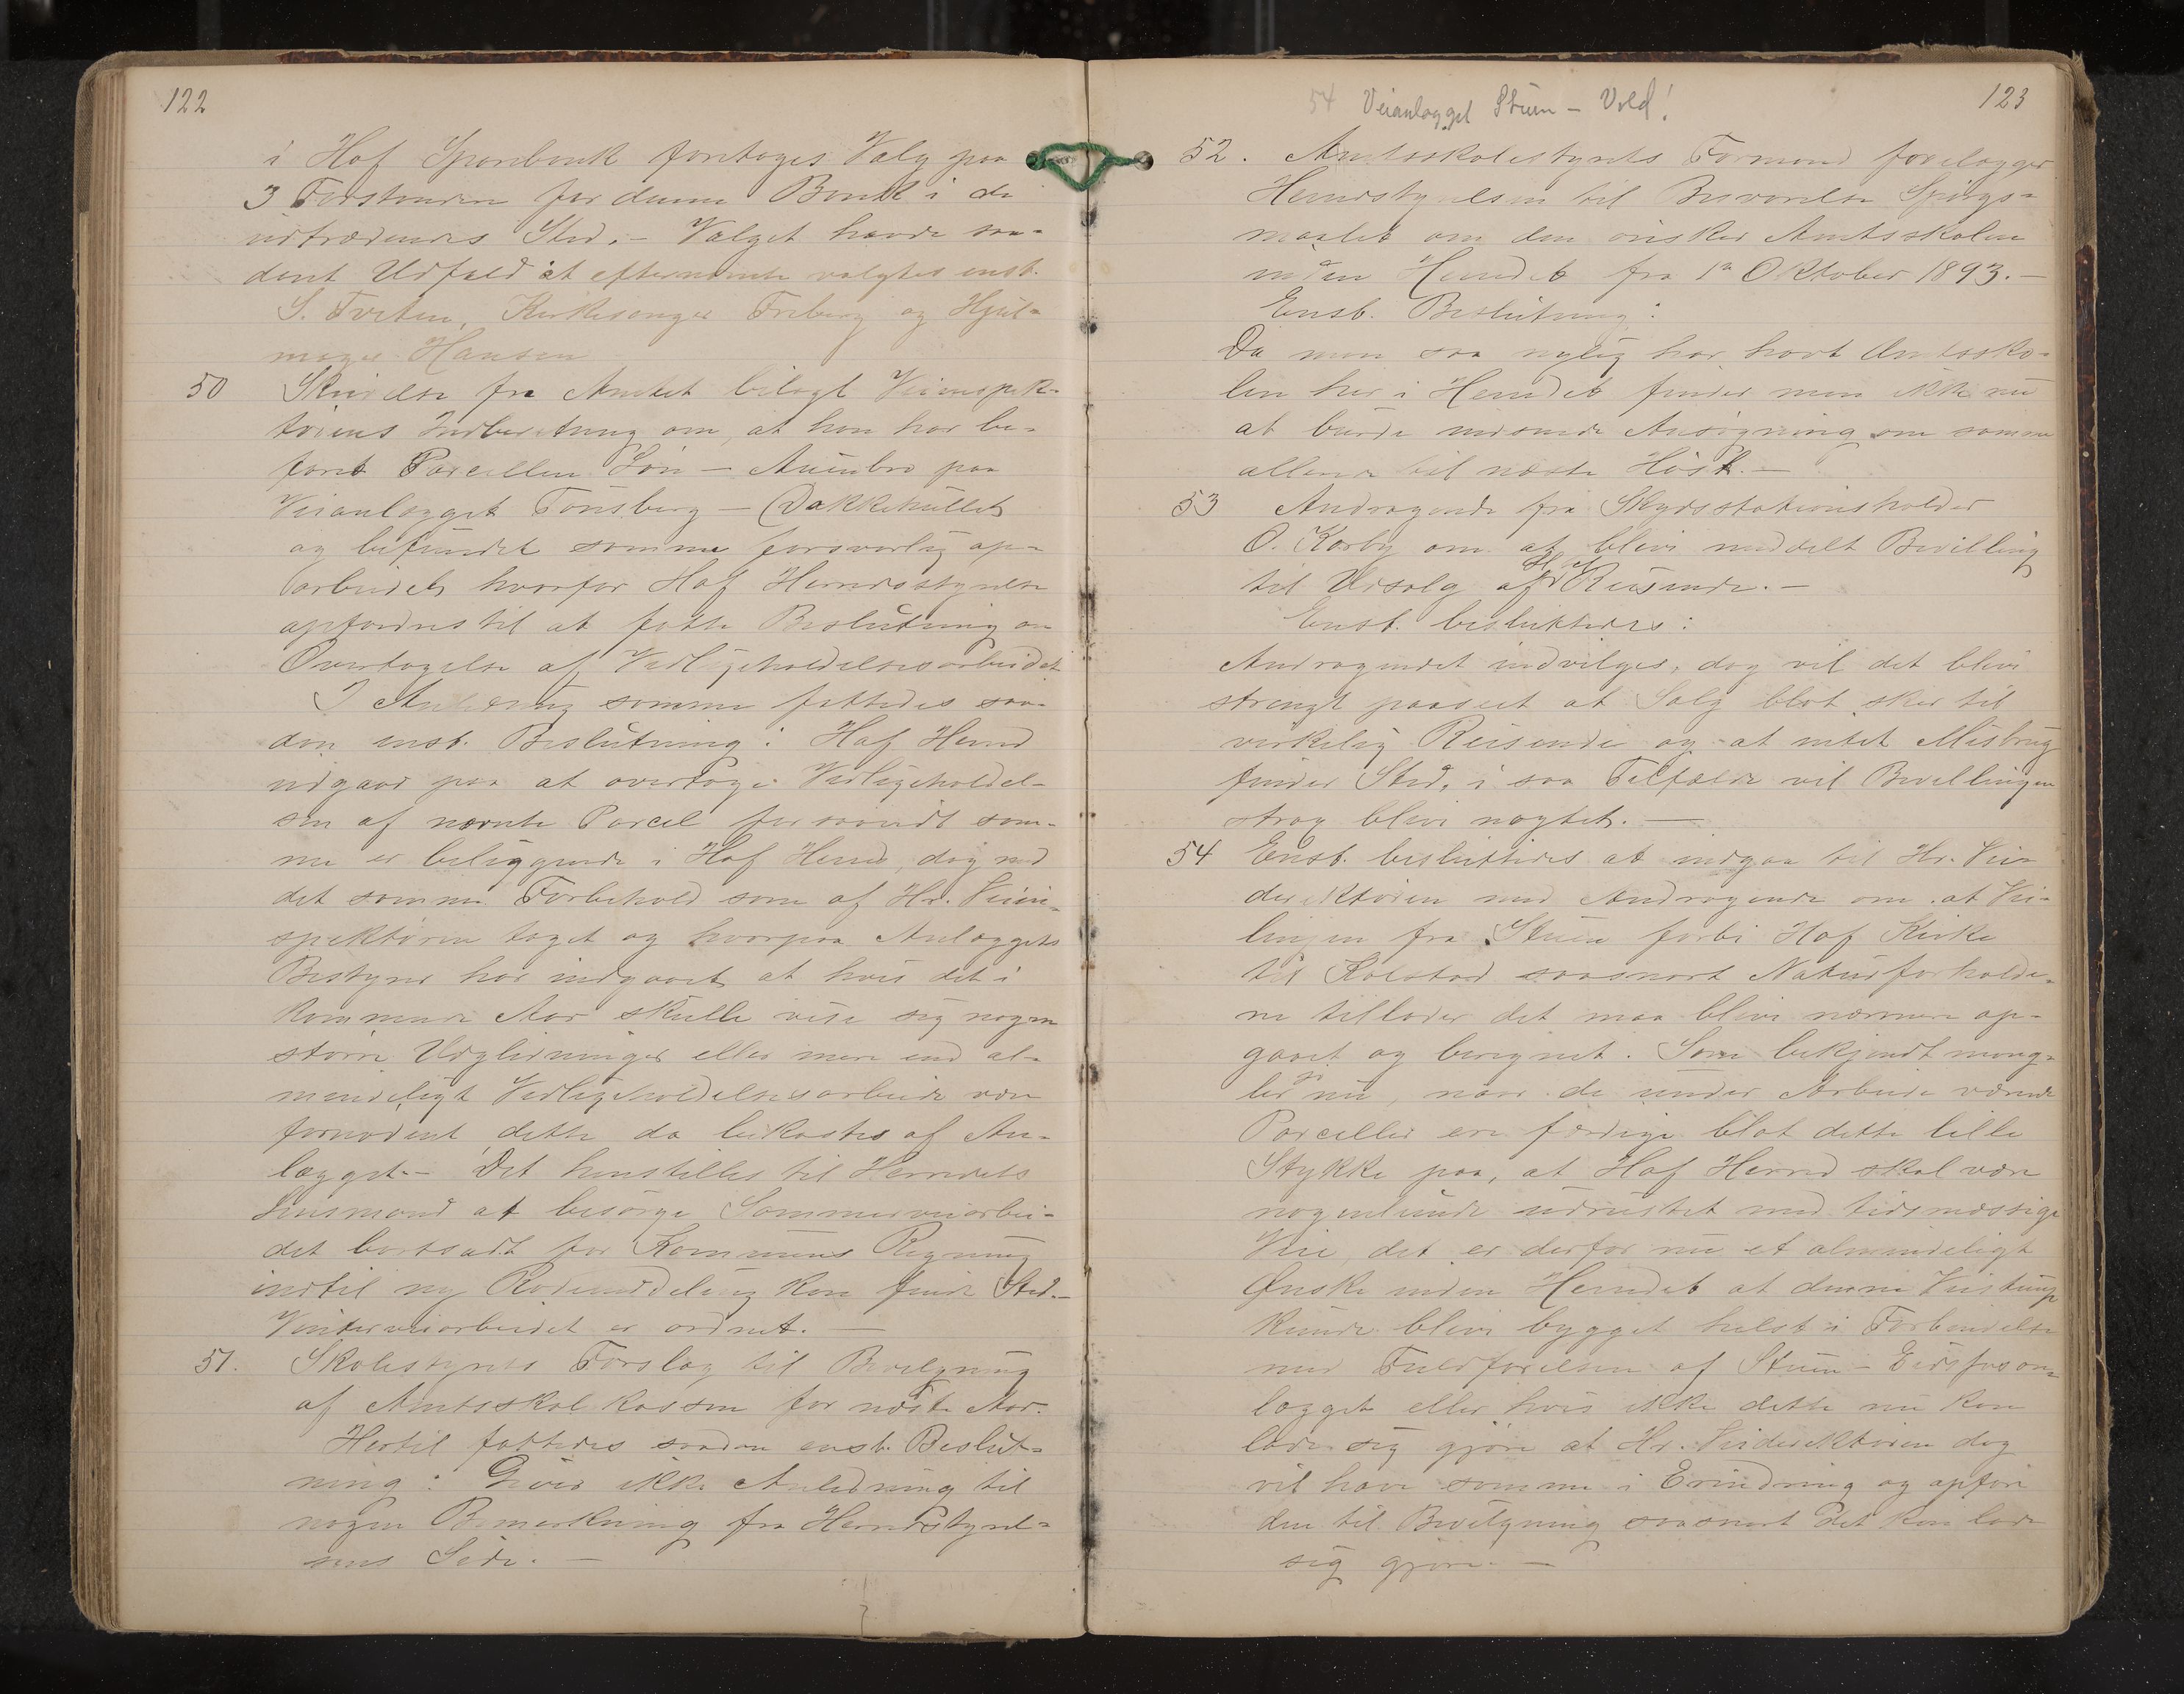 122
i Hof Sparebank foretoges Valg paa
3 Forstandere for denne Bank i de
udtrædendes Sted. – Valget havde saa-
dant Udfald at efternævnte valgtes enst.
S. Tveten, Kirkesanger Freberg og Hjul-
mager Hansen
50 Skrivelse fra Amtet bilagt Veiinspek-
törens Indberetning om, at han har be-
faret Parcellen Sön – Auenbro paa
Veianlægget Tönsberg – Bakkehullet
og befundet samme forsvarlig op-
arbeidet hvorfor Hof Herredsstyrelse
opfordres til at fatte Beslutning om
Overtagelse af Vedligeholdelsesarbeidet
I Anledning samme fattedes saa-
dan enst. Beslutning: Hof Herred
indgaar paa at overtage Vedligeholdel-
sen af nævnte Parcel forsaavidt sam-
me er beliggende i Hof Herred, dog med
det samme Forbehold som af Hr. Veiin-
spektören taget og hvorpaa Anlæggets
Bestyrer har indgaaet at hvis det i
kommende Aar skulle vise sig nogen
större Udglidninger eller mere end al-
mindeligt Vedligeholdelsesarbeide være
fornödent dette da bekostes af An-
lægget. – Det henstilles til Herredets
Lensmand at besörge Sommerveiarbei-
det bortsadt for Kommunens Regning
indtil ny Rodeinddeling kan finde Sted. –
Vinterveiarbeidet er ordnet. –
51. Skolestyrets Forslag til Bevilgning
af Amtsskolekassen for næste Aar.
Hertil fattedes saadan enst. Beslut-
ning: Giver ikke Anledning til
nogen Bemærkning fra Herredsstyrel-
sens Side. –
54 Veianlægget Stuen – Vold!
123
52. Amtsskolestyrets Formand forelægger
Herredsstyrelsen til Besvarelse Spörgs-
maalet om den önsker Amtsskolen
inden Herredet fra 1ste Oktober 1893. –
Ensb. Beslutning:
Da man saa nylig har havt Amtssko-
len her i Herredet finder man ikke nu
at burde indsende Ansögning om samme
allerede til næste Höst. –
53 Andragende fra Skydsstationsholder
O. Korby om at blive meddelt Bevilling
til Udsalg af Öl til Reisende. –
Enst. besluttedes:
Andragendet indvilges, dog vil det blive
strengt paaseet at Salg blot sker til
virkelig Reisende og at intet Misbrug
finder Sted, i saa Tilfælde vil Bevillingen
strax blive nægtet. –
54 Enst. besluttedes at indgaa til Hr. Vei-
direktören med Andragende om at Vei-
linjen fra Stuen forbi Hof Kirke
til Kolstad saasnart Naturforholde-
ne tillader det maa blive nærmere op-
gaaet og beregnet. Som bekjendt mang-
ler jo nu, naar de under Arbeide værende
Parceller ere færdige blot dette lille
Stykke paa, at Hof Herred skal være
nogenlunde udrustet med tidsmæssige
Veie, det er derfor nu et almindeligt
Ønske inden Herredet at denne Veistump
kunde blive bygget helst i Forbindelse
med Fuldförelsen af Stuen – Eidsfosan-
lægget eller hvis ikke dette nu kan
lade sig gjöre at Hr. Veidirektören dog
vil have samme i Erindring og opföre
den til Bevilgning saasnart det kan lade
sig gjöre. –